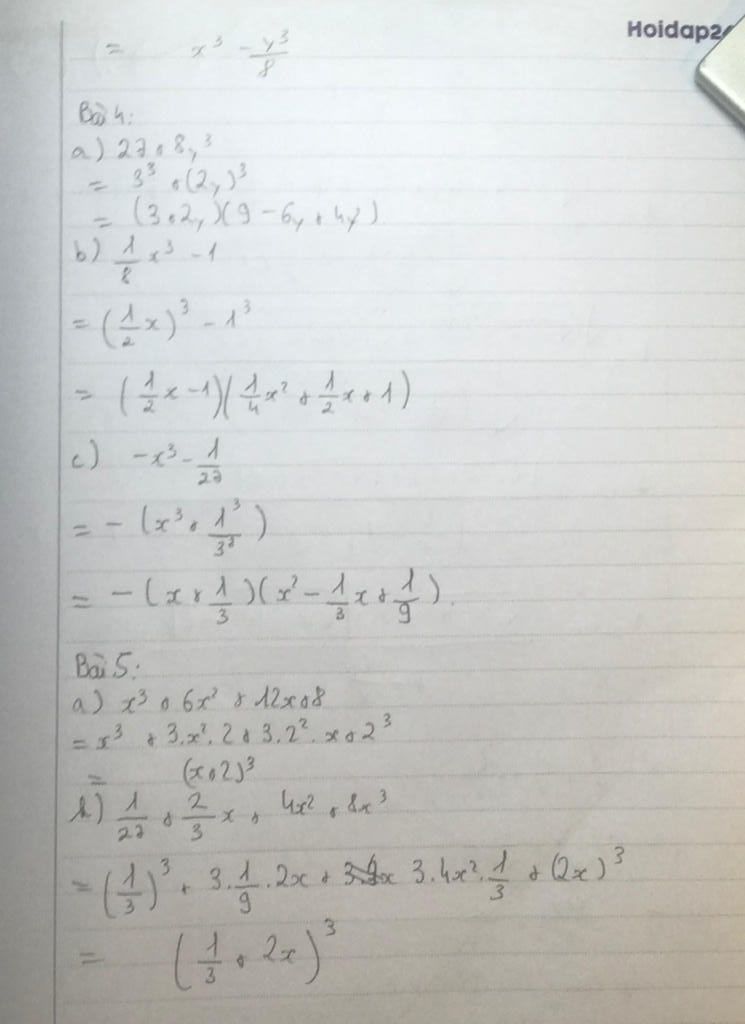 Hoidap24
= x³ - y³/8
Bài 4:
a) 27 + 8y³
= 3³ + (2y)³
= (3 + 2y)(9 - 6y + 4y²)
b) 1/8 x³ - 1
= (1/2 x)³ - 1³
= (1/2 x - 1)(1/4 x² + 1/2 x + 1)
c) -x³ - 1/27
= - (x³ + 1³/3³)
= - (x + 1/3)(x² - 1/3 x + 1/9).
Bài 5:
a) x³ + 6x² + 12x + 8
= x³ + 3.x².2 + 3.2².x + 2³
= (x + 2)³
b) 1/27 + 2/3 x + 4x² + 8x³
= (1/3)³ + 3.1/9.2x + 3.4x².1/3 + (2x)³
= (1/3 + 2x)³